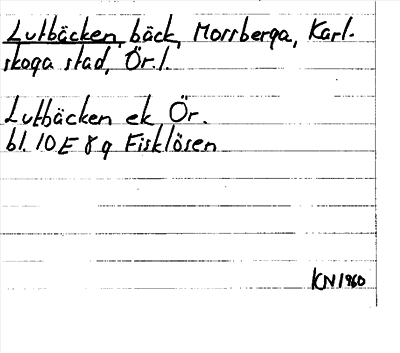 Lutbäcken, bäck, Morsberga, Karl-
skoga stad, Ör. l.
Lutbäcken ek Ör.
bl. 10E 8g Fisklösen
KN 1960